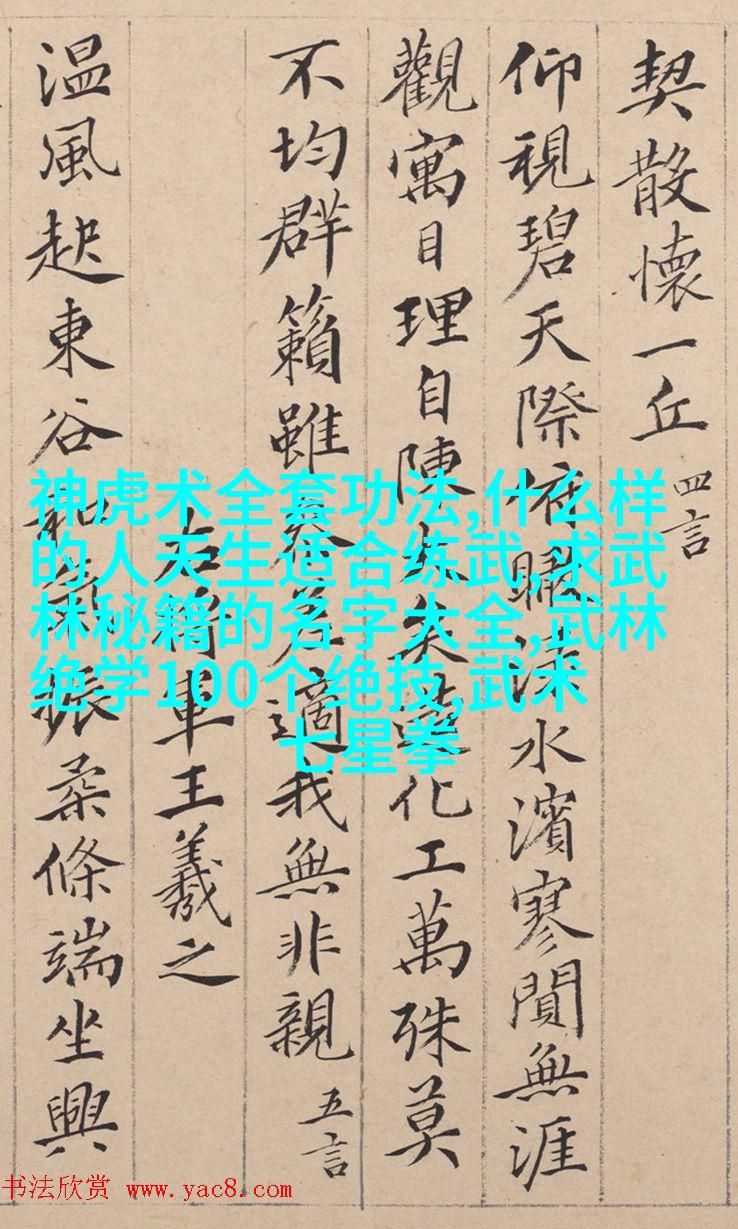 契散懷一丘 四言
仰視碧天際水濱寥闃無涯
觀寓目理自陳大矣造化工萬殊莫
不均群籟雖參差適我無非親 五言
右將軍王羲之
温風起東谷和氣振柔條端坐興
神虎术全套功法,什么样
的人天生适合练武,求武
林秘籍的名字大全,武林
绝学100个绝技,武术
七星拳
书法欣赏 www.yac8.com